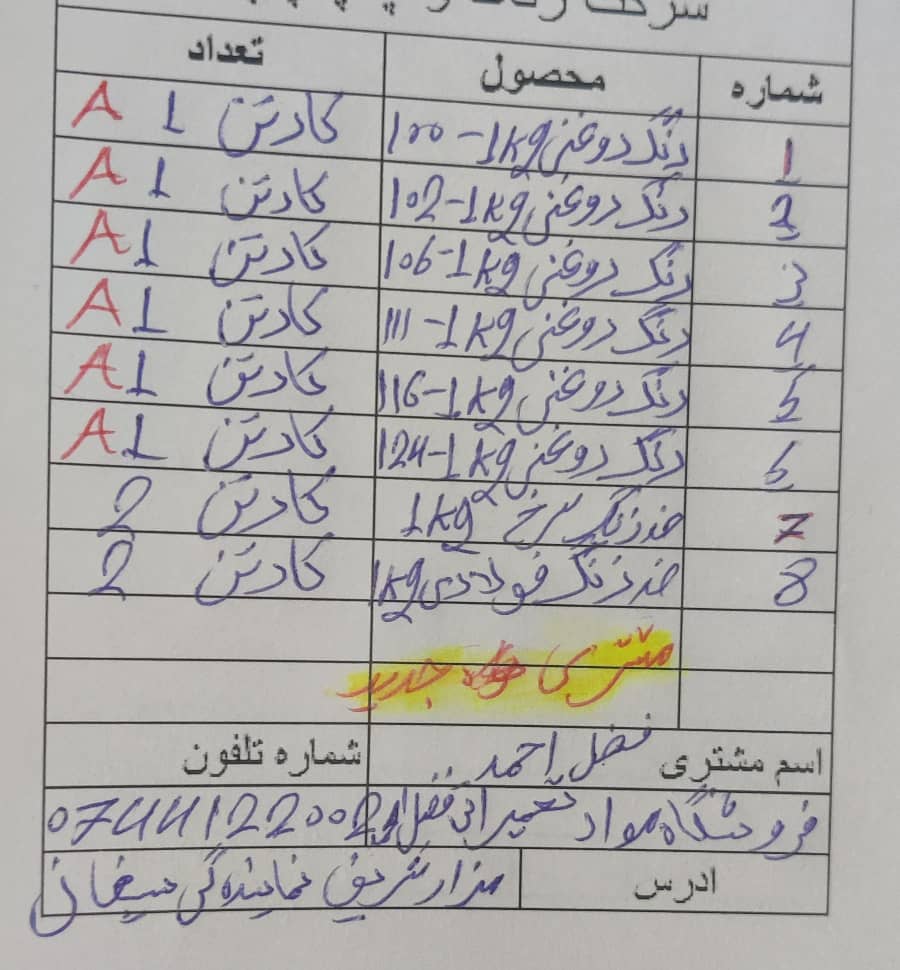 شماره محصول تعداد
1 رنگ روغنی 1kg-100 کارتن 1 A
2 رنگ روغنی 1kg-102 کارتن 1 A
3 رنگ روغنی 1kg-106 کارتن 1 A
4 رنگ روغنی 1kg-111 کارتن 1 A
5 رنگ روغنی 1kg-116 کارتن 1 A
6 رنگ روغنی 1kg-124 کارتن 1 A
7 ضد زنگ سرخ 1kg کارتن 2
8 ضد زنگ فولادی 1kg کارتن 2
مشتری جدید
اسم مشتری فضل احمد شماره تلفون
فروشگاه مواد تعمیراتی فضل 0744122002
ادرس مزار شریف نمایندگی